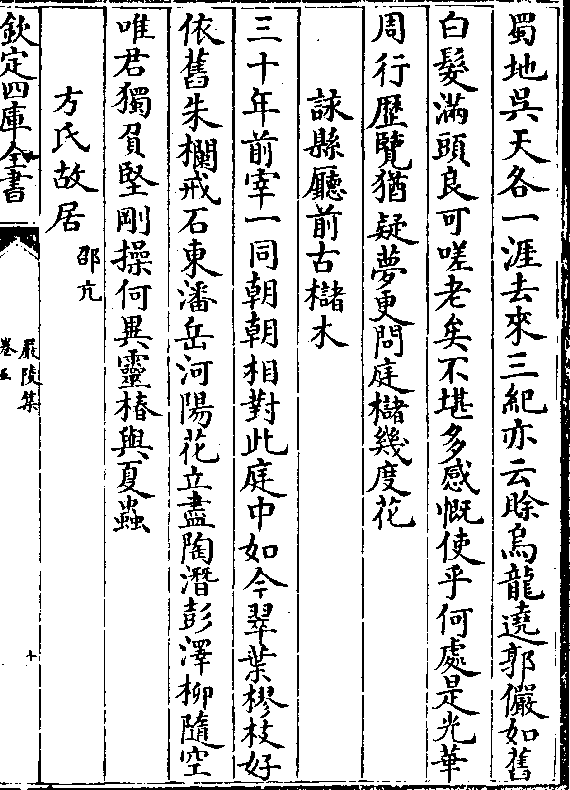 蜀地吳天各一涯去來三紀亦云賖烏龍遶郭儼如舊
白髮滿頭良可嗟老矣不堪多感慨使乎何處是光華
周行歴覽猶疑夢更問庭櫧幾度花
詠縣廳前古櫧木
三十年前宰一同朝朝相對此庭中如今翠葉樛枝好
依舊朱欄戒石東潘岳河陽花立盡陶潛彭澤柳隨空
唯君獨負堅剛操何異靈椿與夏蟲
方氏故居
邵亢
欽定四庫全書
嚴陵集
卷五
十